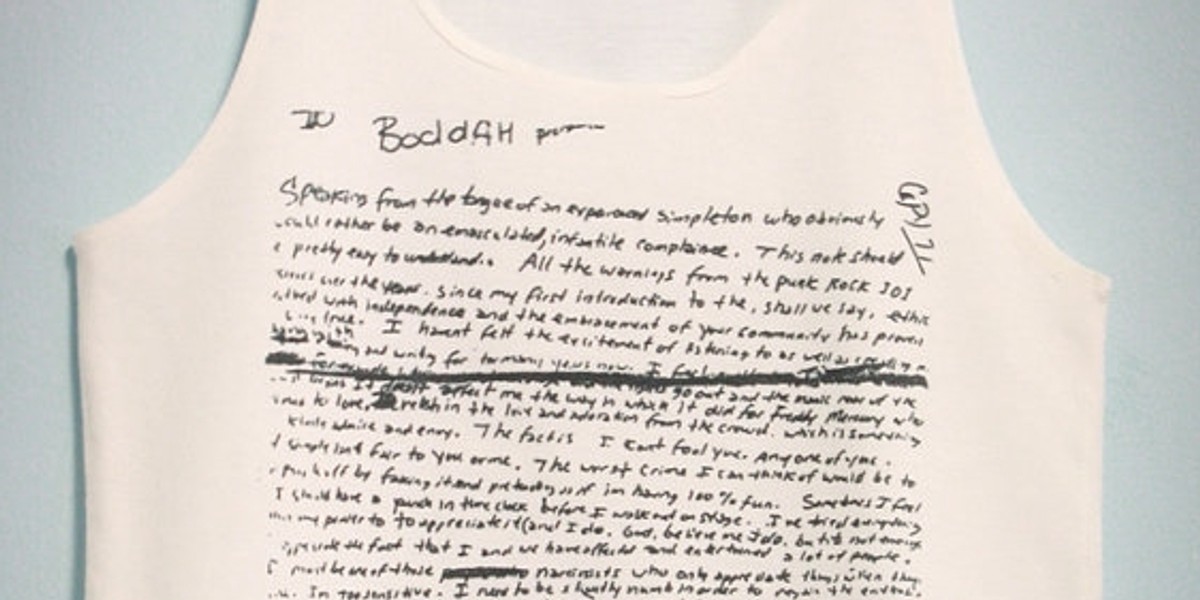 To BoddAH
Speaking from the tongue of an experienced simpleton who obviously
would rather be an emasculated, infantile complainee. This note should
e pretty easy to understand. All the warnings from the punk ROCK 101
over the years. since my first introduction to the, shall we say, ethic
with independence and the embracement of your community has proven
true. I havent felt the excitement of listening to as well as creating
and writing for too many years now. I feel
go out and the manic roar of the
doesnt affect me the way in which it did for Freddy Mercury who
to love, relish in the love and adoration from the crowd. which is something
admire and envy. The fact is I cant fool you. Any one of you.
simple isnt fair to you or me. The worst crime I can think of would be to
off by faking it and pretending as if im having 100% fun. Sometimes I feel
I should have a punch in time clock before I walk out on stage. I've tried everything
my power to to appreciate it (and I do, God, believe me I do, but its not enough
the fact that I and we have affected and entertained a lot of people.
must be one of those narcissists who only appreciate things when they
Im too sensitive. I need to be slightly numb in order to regain the